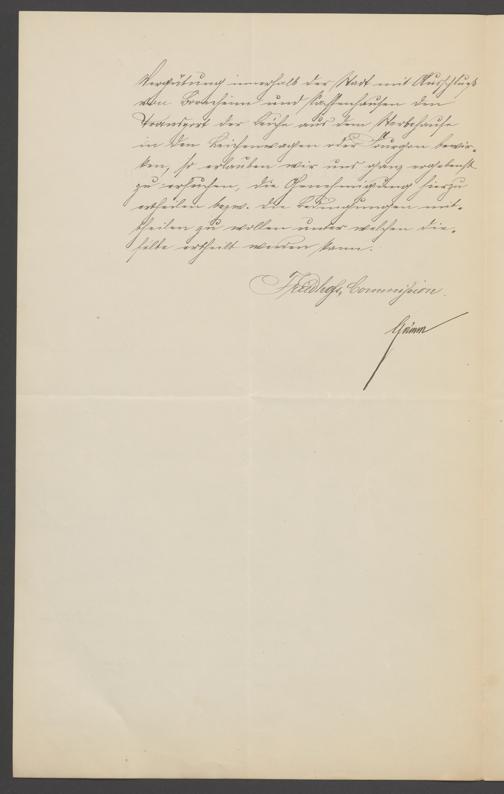 Vergütung innerhalb der Stadt mit Ausschluß
von Bornheim und Sachsenhausen den
Transport der Leiche aus dem Sterbehause
in den Leichenwagen oder Fourgon bewir-
ken, so erlauben wir uns ganz ergebenst
zu ersuchen, die Genehmigung hierzu
ertheilen bezw. die Bedingungen mit-
theilen zu wollen unter welchen die-
selbe ertheilt werden kann.
Friedhofs-Commission.
Grimm